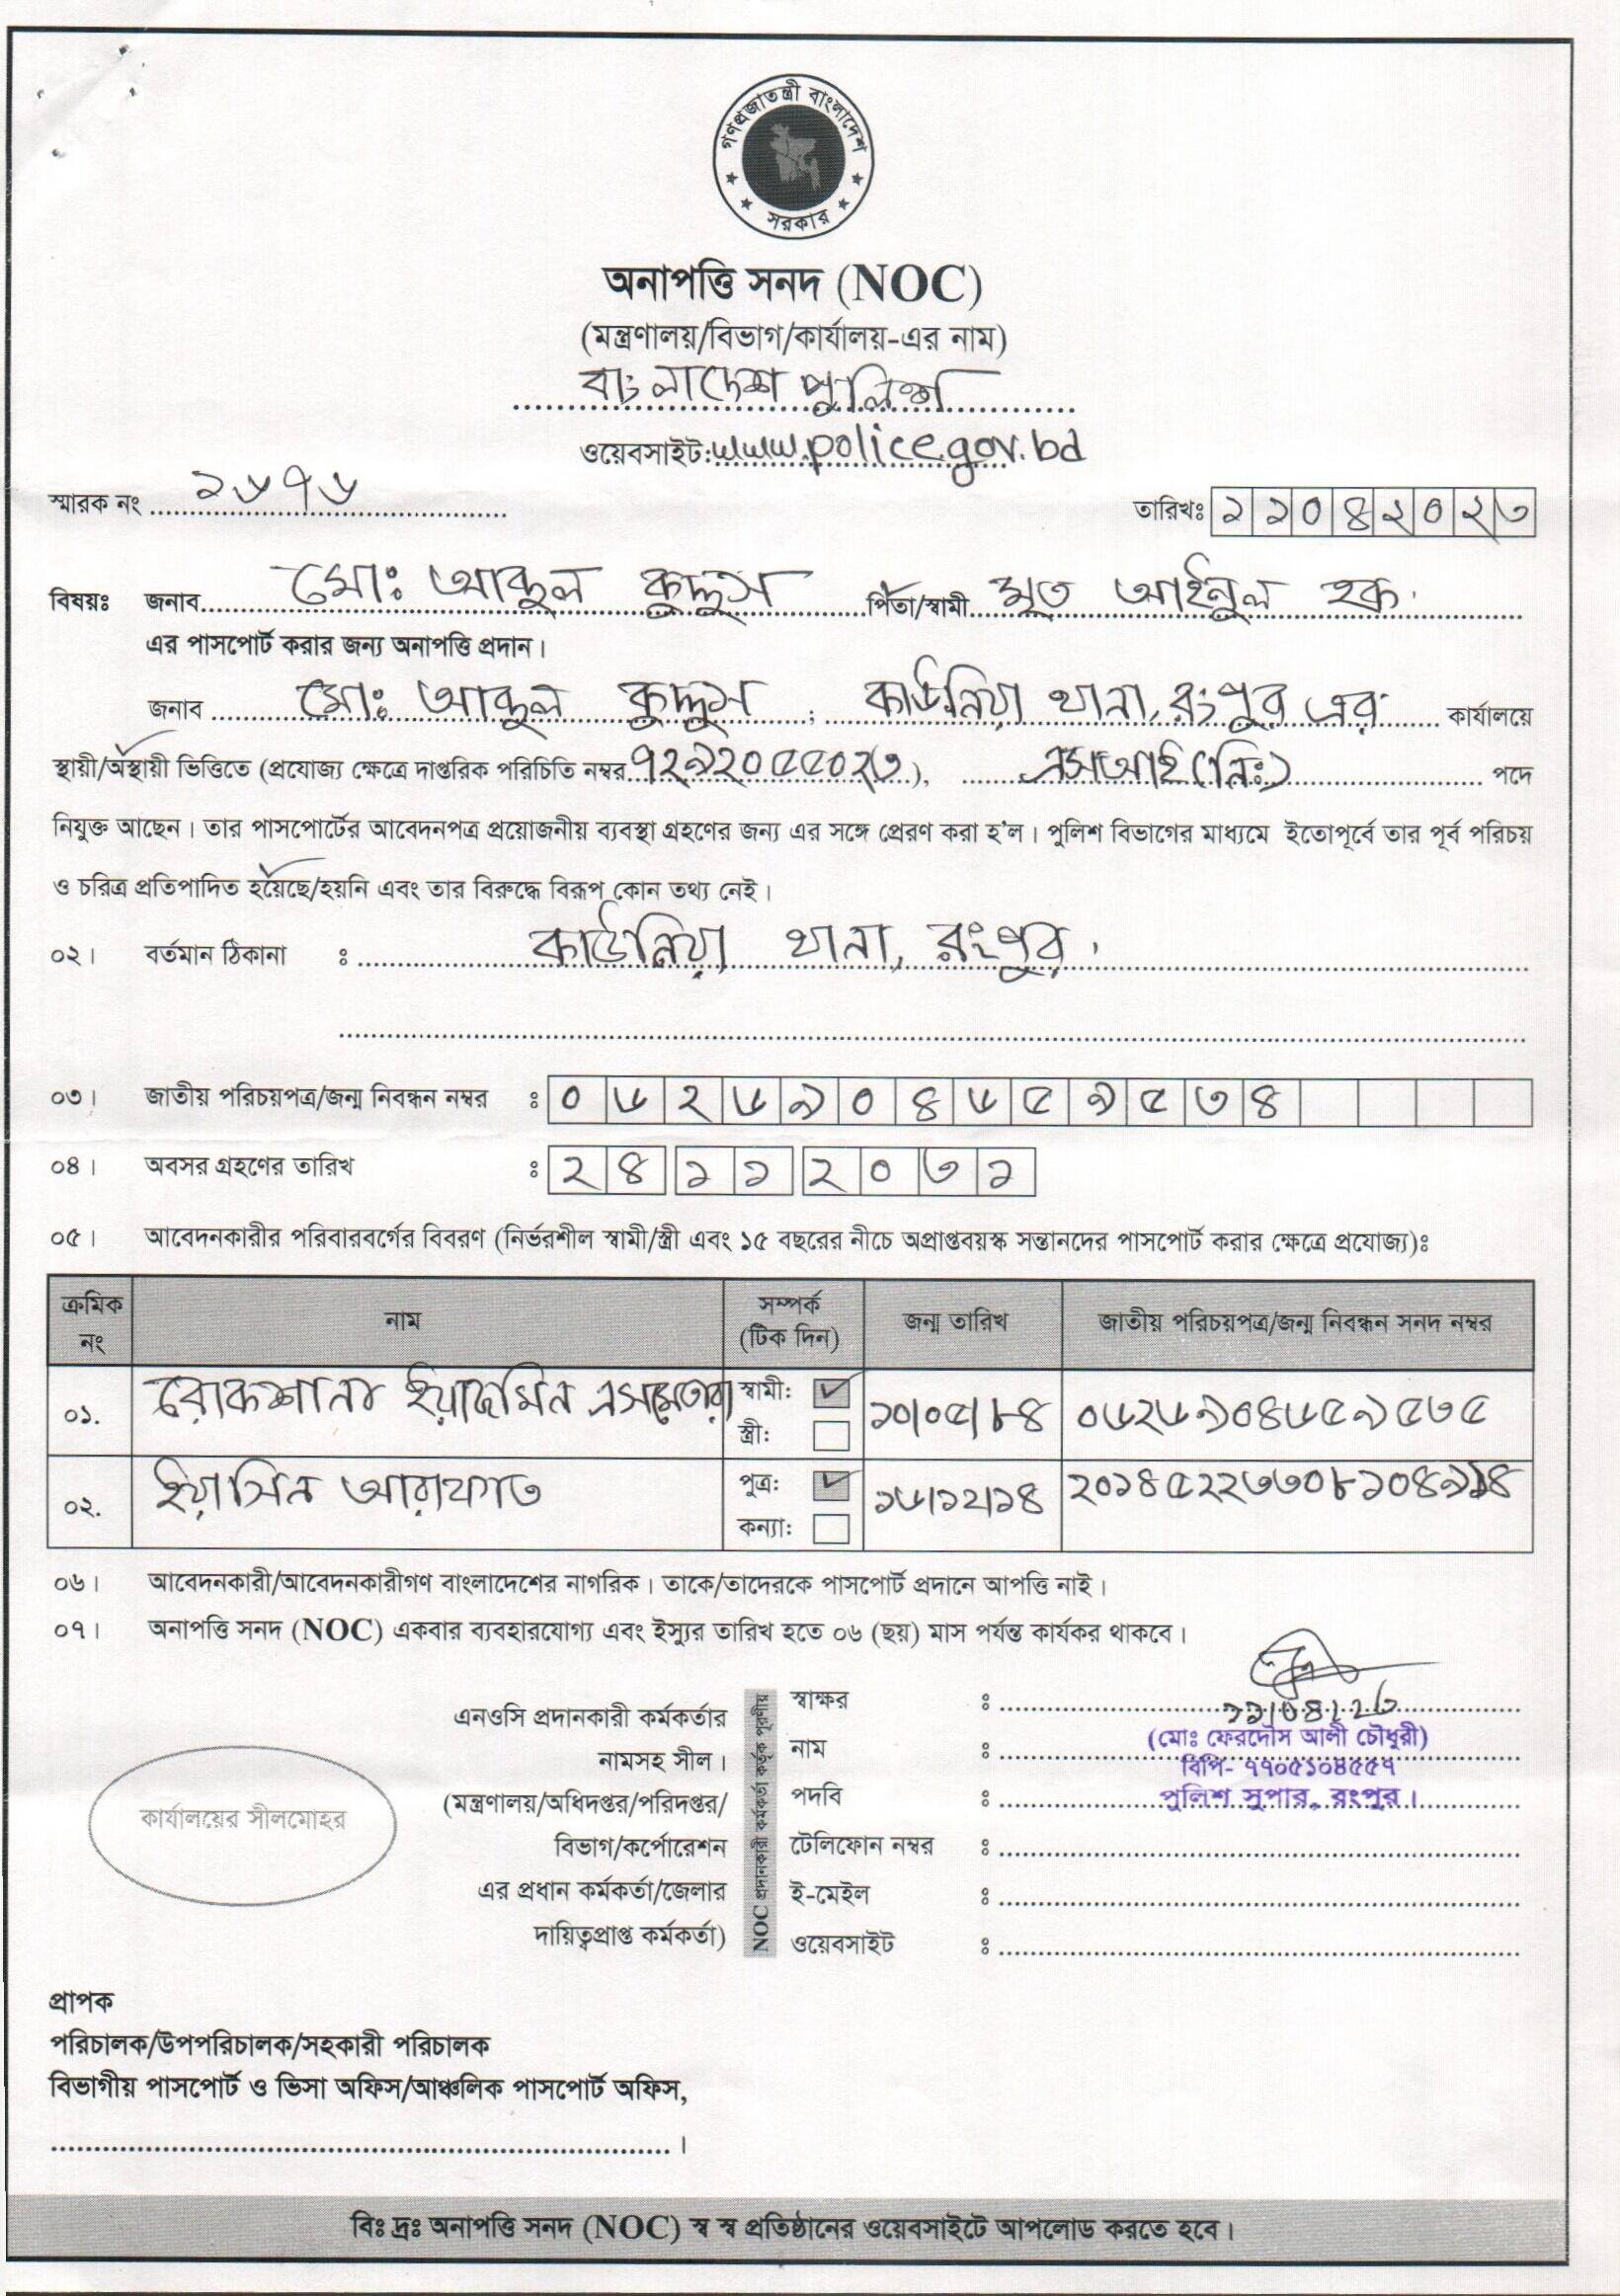 গণপ্রজাতন্ত্রী বাংলাদেশ
সরকার
অনাপত্তি সনদ (NOC)
(মন্ত্রণালয়/বিভাগ/কার্যালয়-এর নাম)
বাংলাদেশ পুলিশ
ওয়েবসাইট:www.police.gov.bd
স্মারক নং ১৬৭৬ তারিখঃ ১১০৪২০২৩
বিষয়ঃ জনাব মোঃ আব্দুল কুদ্দুস পিতা/স্বামী মৃত আইনুল হক
এর পাসপোর্ট করার জন্য অনাপত্তি প্রদান।
জনাব মোঃ আব্দুল কুদ্দুস ; কাউনিয়া থানা, রংপুর এর কার্যালয়ে
স্থায়ী/অস্থায়ী ভিত্তিতে (প্রযোজ্য ক্ষেত্রে দাপ্তরিক পরিচিতি নম্বর ৭২৯২০৫৫০২৩), এসআই(নিঃ) পদে
নিযুক্ত আছেন। তার পাসপোর্টের আবেদনপত্র প্রয়োজনীয় ব্যবস্থা গ্রহণের জন্য এর সঙ্গে প্রেরণ করা হ'ল। পুলিশ বিভাগের মাধ্যমে ইতোপূর্বে তার পূর্ব পরিচয়
ও চরিত্র প্রতিপাদিত হয়েছে/হয়নি এবং তার বিরুদ্ধে বিরূপ কোন তথ্য নেই।
০২। বর্তমান ঠিকানা ঃ কাউনিয়া থানা, রংপুর।
০৩। জাতীয় পরিচয়পত্র/জন্ম নিবন্ধন নম্বর ঃ ০৬২৬৯০৪৬৫৯৫৩৪
০৪। অবসর গ্রহণের তারিখ ঃ ২৪ ১১ ২০৩১
০৫। আবেদনকারীর পরিবারবর্গের বিবরণ (নির্ভরশীল স্বামী/স্ত্রী এবং ১৫ বছরের নীচে অপ্রাপ্তবয়স্ক সন্তানদের পাসপোর্ট করার ক্ষেত্রে প্রযোজ্য)ঃ
ক্রমিক নং নাম সম্পর্ক (টিক দিন) জন্ম তারিখ জাতীয় পরিচয়পত্র/জন্ম নিবন্ধন সনদ নম্বর
০১. রোকশানা ইয়াছমিন এসমেতারা স্বামী: ১০/০৫/৮৪ ০৬২৬৯০৪৬৫৯৫৩৫
স্ত্রী:
০২. ইয়াসিন আরাফাত পুত্র: ১৬/১২/১৪
কন্যা:
০৬। আবেদনকারী/আবেদনকারীগণ বাংলাদেশের নাগরিক। তাকে/তাদেরকে পাসপোর্ট প্রদানে আপত্তি নাই।
০৭। অনাপত্তি সনদ (NOC) একবার ব্যবহারযোগ্য এবং ইস্যুর তারিখ হতে ০৬ (ছয়) মাস পর্যন্ত কার্যকর থাকবে।
এনওসি প্রদানকারী কর্মকর্তার
নামসহ সীল।
(মন্ত্রণালয়/অধিদপ্তর/পরিদপ্তর/
বিভাগ/কর্পোরেশন
এর প্রধান কর্মকর্তা/জেলার
দায়িত্বপ্রাপ্ত কর্মকর্তা)
কার্যালয়ের সীলমোহর
NOC প্রদানকারী কর্মকর্তা কর্তৃক পূরণীয়
স্বাক্ষর ঃ ১১/০৪/২৩
নাম ঃ (মোঃ ফেরদৌস আলী চৌধুরী)
বিপি- ৭৭০৫১০৪৫৫৭
পদবি ঃ পুলিশ সুপার, রংপুর।
টেলিফোন নম্বর ঃ
ই-মেইল ঃ
ওয়েবসাইট ঃ
প্রাপক
পরিচালক/উপপরিচালক/সহকারী পরিচালক
বিভাগীয় পাসপোর্ট ও ভিসা অফিস/আঞ্চলিক পাসপোর্ট অফিস,
।
বিঃ দ্রঃ অনাপত্তি সনদ (NOC) স্ব স্ব প্রতিষ্ঠানের ওয়েবসাইটে আপলোড করতে হবে।